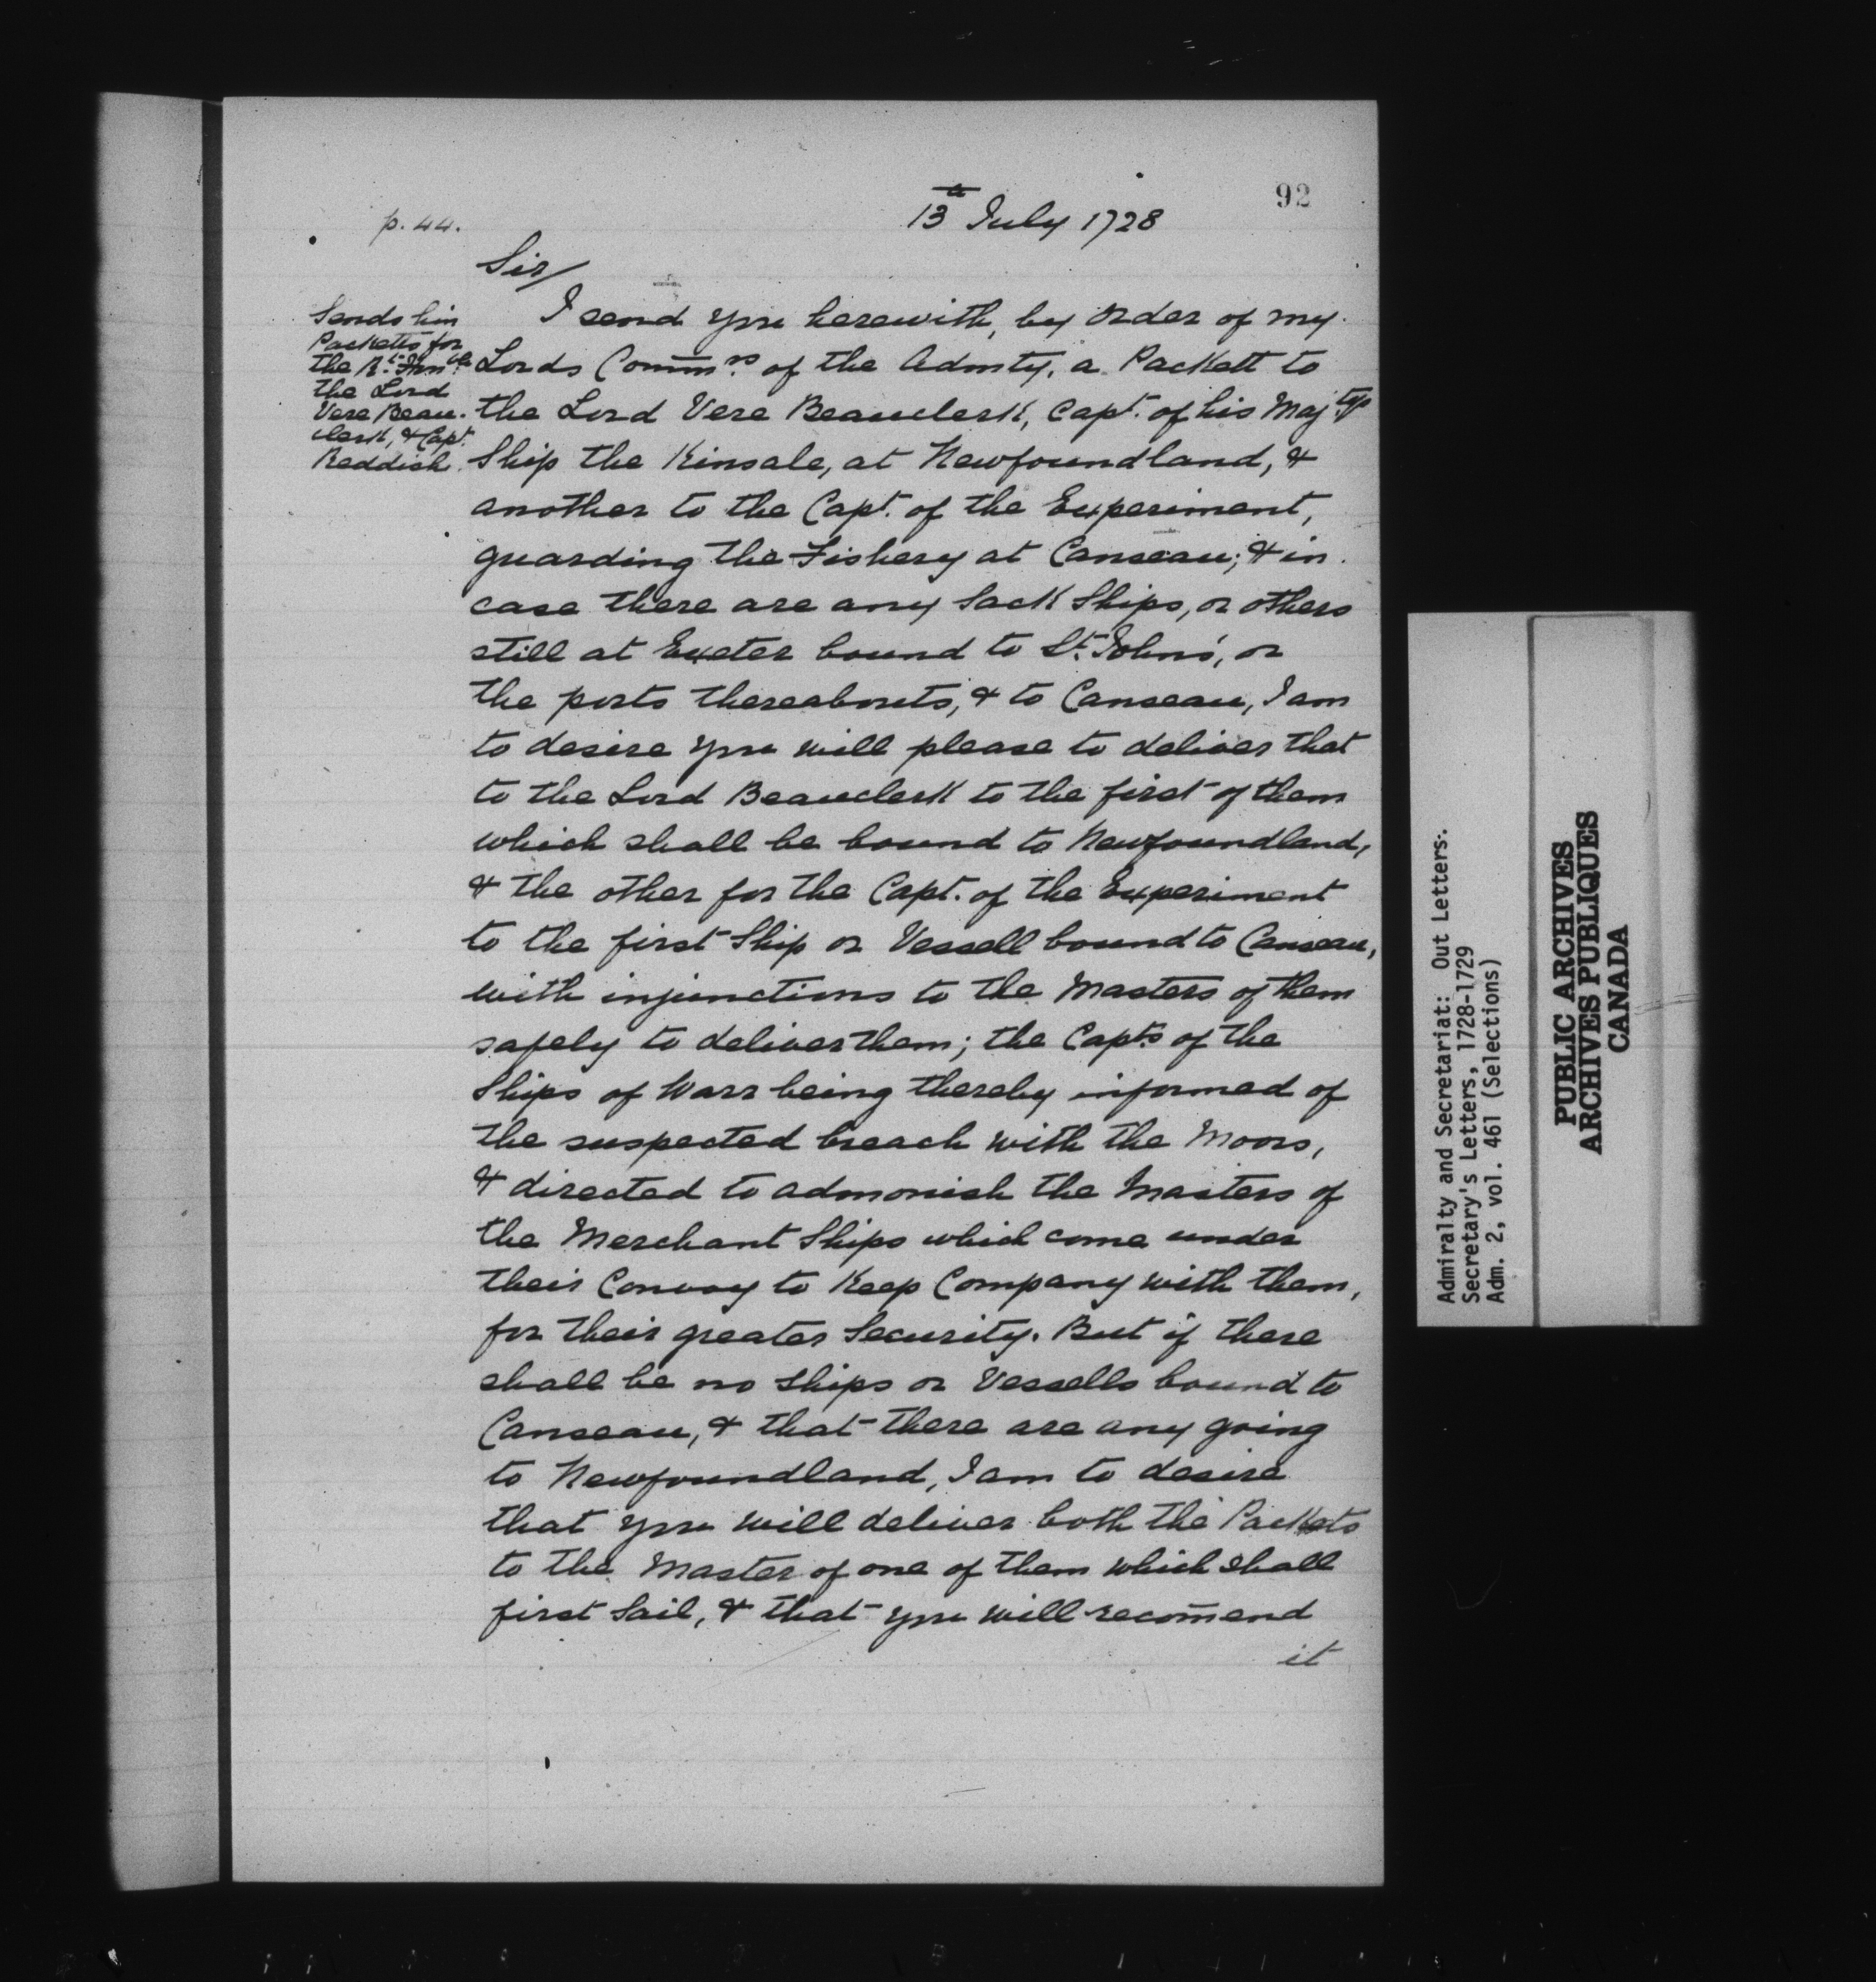 92
p. 44.
13th July 1728
Sir/
Sends him
Packetts for
the Rt. Honble
the Lord
Vere Beau-
clerk, & Capt.
Reddish
I send you herewith, by order of my
Lords Commrs. of the Admty, a Packett to
the Lord Vere Beauclerk, Capt. of his Majtys
Ship the Kinsale, at Newfoundland, &
another to the Capt. of the Experiment,
guarding the Fishery at Canseau; & in
case there are any Sack Ships, or others
still at Exeter bound to St. Johns', or
the ports thereabouts, & to Canseau, I am
to desire you will please to deliver that
to the Lord Beauclerk to the first of them
which shall be bound to Newfoundland,
& the other for the Capt. of the Experiment
to the first Ship or Vessell bound to Canseau,
with injunctions to the Masters of them
safely to deliver them; the Capts of the
Ships of Warr being thereby informed of
the suspected breach with the Moors,
& directed to admonish the Masters of
the Merchant Ships which come under
their Convoy to Keep Company with them,
for their greater Security. But if there
shall be no Ships or Vessells bound to
Canseau, & that there are any going
to Newfoundland, I am to desire
that you will deliver both the Packets
to the Master of one of them which shall
first Sail, & that you will recom̄end
it
Admiralty and Secretariat: Out Letters.
Secretary's Letters, 1728-1729
Adm. 2, vol. 461 (Selections)
PUBLIC ARCHIVES
ARCHIVES PUBLIQUES
CANADA